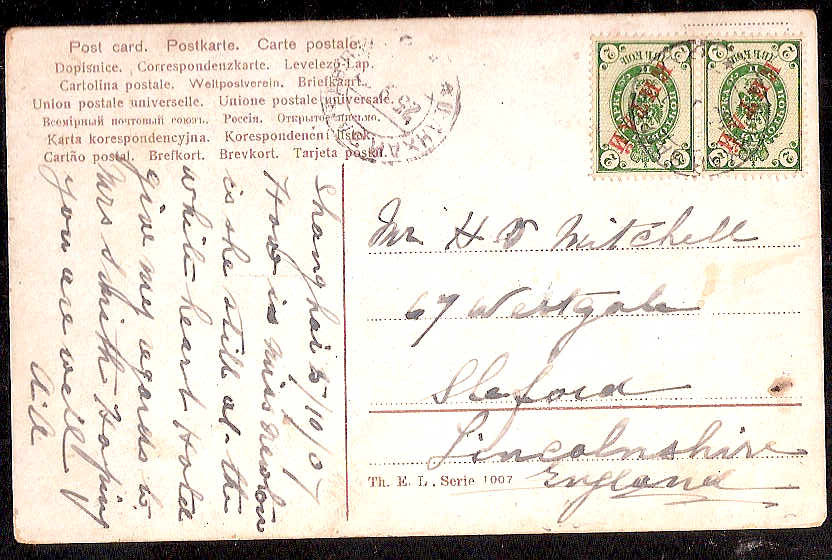 Post card. Postkarte. Carte postale.
Dopisnice. Correspondenzkarte. Levelező-Lap.
Cartolina postale. Weltpostverein. Briefkaart.
Union postale universelle. Unione postale universale.
Всемірный почтовый союзъ. Россія. Открытое письмо.
Karta korespondencyjna. Korespondenční lístek.
Cartão postal. Brefkort. Brevkort. Tarjeta postal.
Shanghai 5/10/07
How is miss
is she still at the
white heart Hotel
give my regards to
Mrs Smith Hoping
you are well
Mr H D Mitchell
67 Westgate
Sleford
Lincolnshire
England
Th. E. L. Serie 1007
2 2
2 2
КИТАЙ
КИТАЙ
ШАНХАЙ